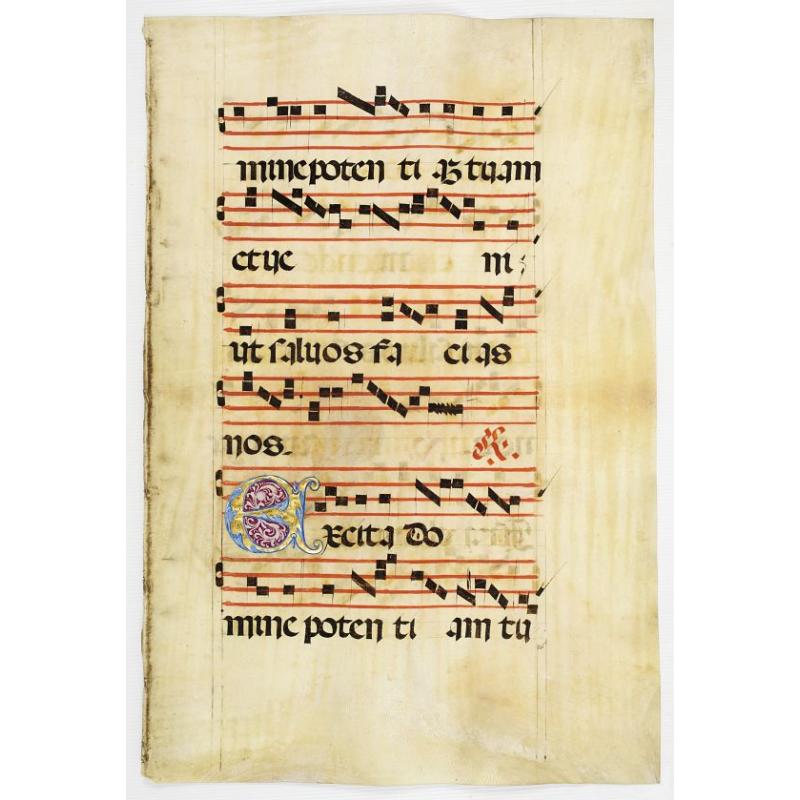 mine poten ti a3 tuam
et ve ni
ut salvos fa cias
nos.
Excita do
mine poten ti am tu